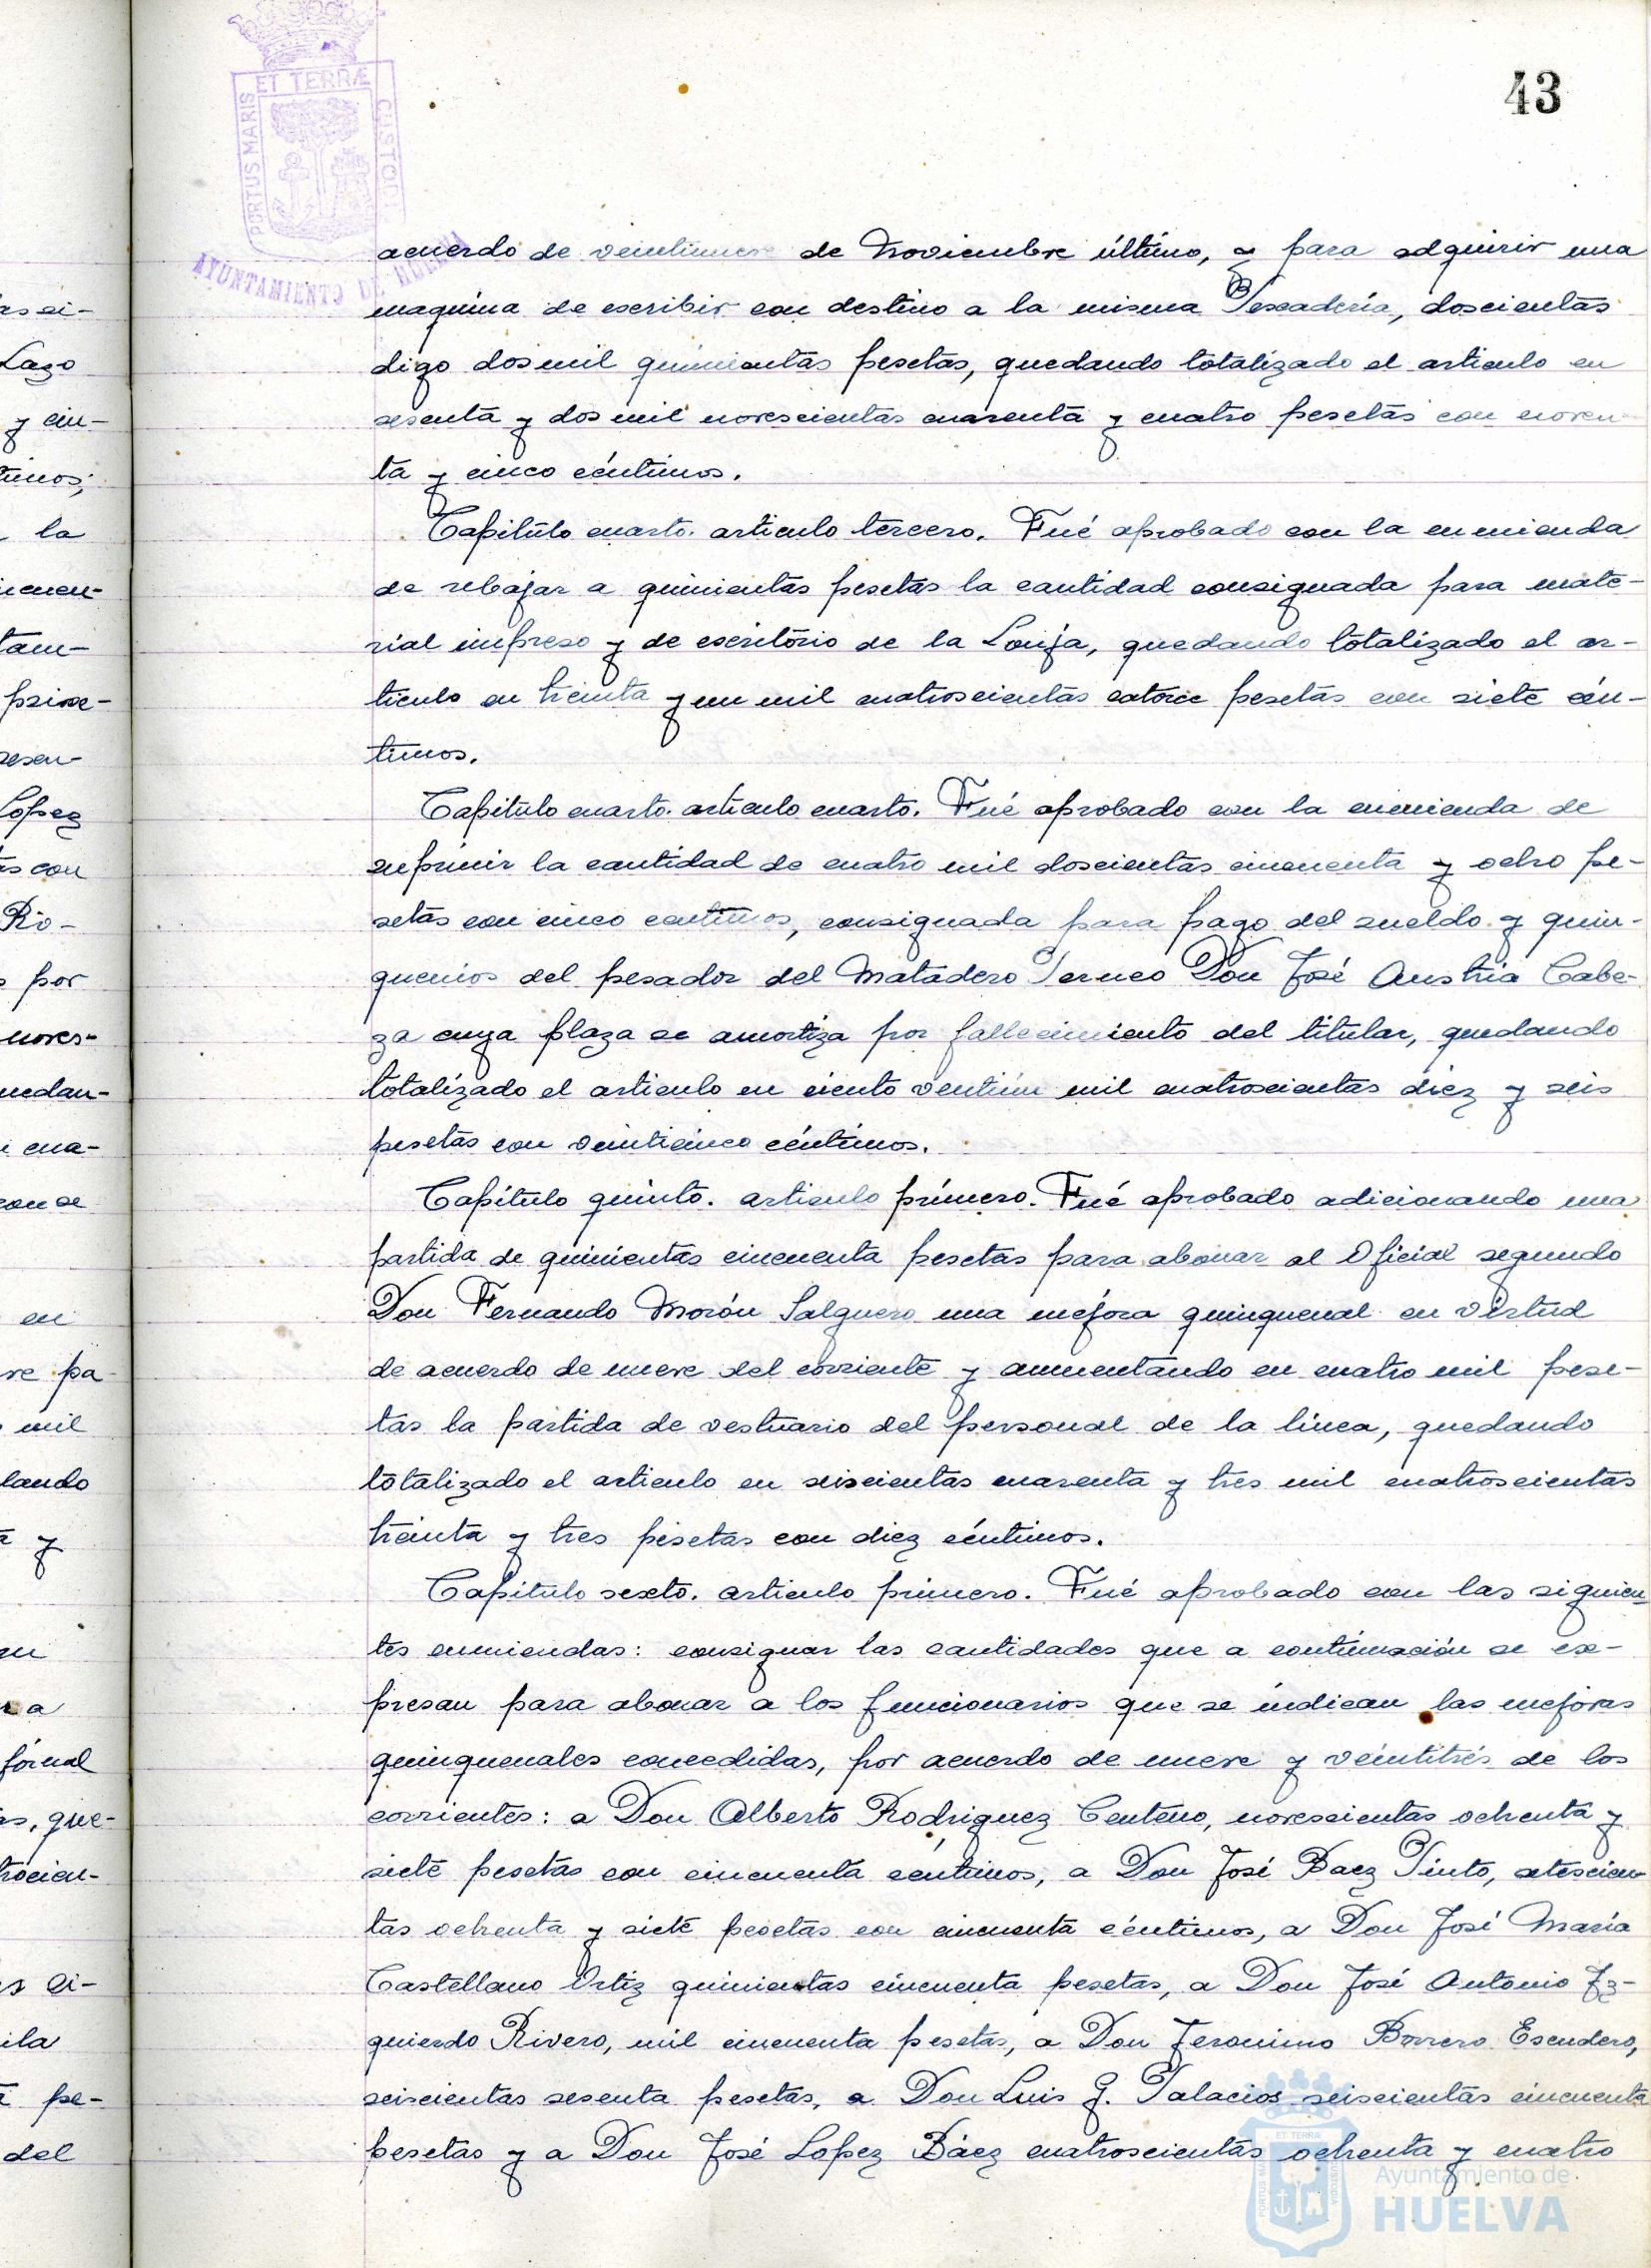 43
PORTUS MARIS ET TERRÆ CUSTODI
AYUNTAMIENTO DE HUELVA
as ci-
Lazo
y cin-
timos;
la
cuen-
tam-
prime-
sesen-
Lopez
as con
Rio-
s por
noves-
uedan-
cua-
con se
en
ve pa-
mil
dando
a y
ra
fornal
as, que-
trocien-
s ci-
ila
pe-
del
acuerdo de veintinueve de Noviembre último, y para adquirir una
maquina de escribir con destino a la misma Pescadería, doscientas
digo dos mil quinientas pesetas, quedando totalizado el articulo en
sesenta y dos mil novescientas cuarenta y cuatro pesetas con noven
ta y cinco céntimos.
Capítulo cuarto. articulo tercero. Fué aprobado con la enmienda
de rebajar a quinientas pesetas la cantidad consignada para mate-
rial impreso y de escritorio de la Lonja, quedando totalizado el ar-
tículo en treinta y un mil cuatroscientas catorce pesetas con siete cén-
timos.
Capítulo cuarto. articulo cuarto. Fué aprobado con la enmienda de
suprimir la cantidad de cuatro mil doscientas cincuenta y ocho pe-
setas con cinco centimos, consignada para pago del sueldo y quin-
quenios del pesador del Matadero Porcuno Don José Austria Cabe-
za cuya plaza se amortiza por fallecimiento del titular, quedando
totalizado el articulo en ciento ventiún mil cuatroscientas diez y seis
pesetas con veinticinco céntimos.
Capítulo quinto. articulo primero. Fué aprobado adicionando una
partida de quinientas cincuenta pesetas para abonar al Oficial segundo
Don Fernando Morón Salguero una mejora quinquenal en virtud
de acuerdo de nueve del corriente y aumentando en cuatro mil pese-
tas la partida de vestuario del personal de la línea, quedando
totalizado el articulo en seiscientas cuarenta y tres mil cuatroscientas
treinta y tres pesetas con diez céntimos.
Capítulo sexto. articulo primero. Fué aprobado con las siguien
tes enmiendas: consignar las cantidades que a continuación se ex-
presan para abonar a los funcionarios que se indican las mejoras
quinquenales concedidas, por acuerdo de nueve y veintitrés de los
corrientes: a Don Alberto Rodriguez Centeno, novescientas ochenta y
siete pesetas con cincuenta céntimos, a Don José Baez Pinto, setescien
tas ochenta y siete pesetas con cincuenta céntimos, a Don José María
Castellano Ortiz quinientas cincuenta pesetas, a Don José Antonio Iz-
quierdo Rivero, mil cincuenta pesetas, a Don Jeronimo Borrero Escudero,
seiscientas sesenta pesetas, a Don Luis G. Palacios seiscientas cincuenta
pesetas y a Don José Lopez Báez cuatroscientas ochenta y cuatro
Ayuntamiento de
HUELVA